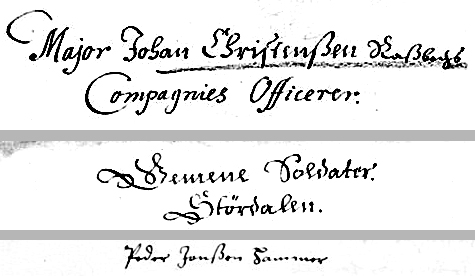 Major Johan Christenßen Raßbergs
Compagnies Officerer.
Gemene Soldater.
Stördalen.
Peder Jonßen Hammer